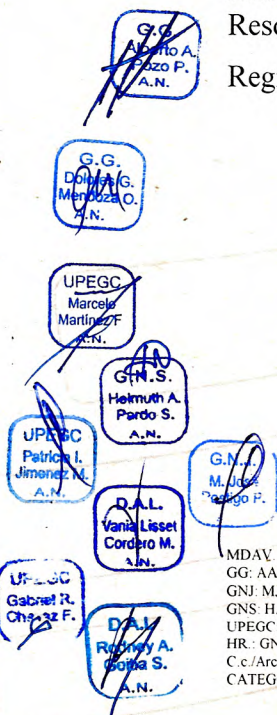 Reso
Reg
G.G.
Alberto A.
Pozo P.
A.N.
G.G.
Dolores G.
Mendoza O.
A.N.
UPEGC
Marcelo
Martinez F
A.N.
G.N.S.
Helmuth A.
Pardo S.
A.N.
UPEGC
Patricia I.
Jimenez M.
A.N.
G.N.J.
M. José
Postigo P.
D.A.L.
Vania Lisset
Cordero M.
A.N.
UPEGC
Gabriel R.
Chavez F.
D.A.L.
Rodney A.
A.N.
MDAV.
GG: AA
GNJ: M.
GNS: H.
UPEGC
HR.: GN
C.c./Arc
CATEG